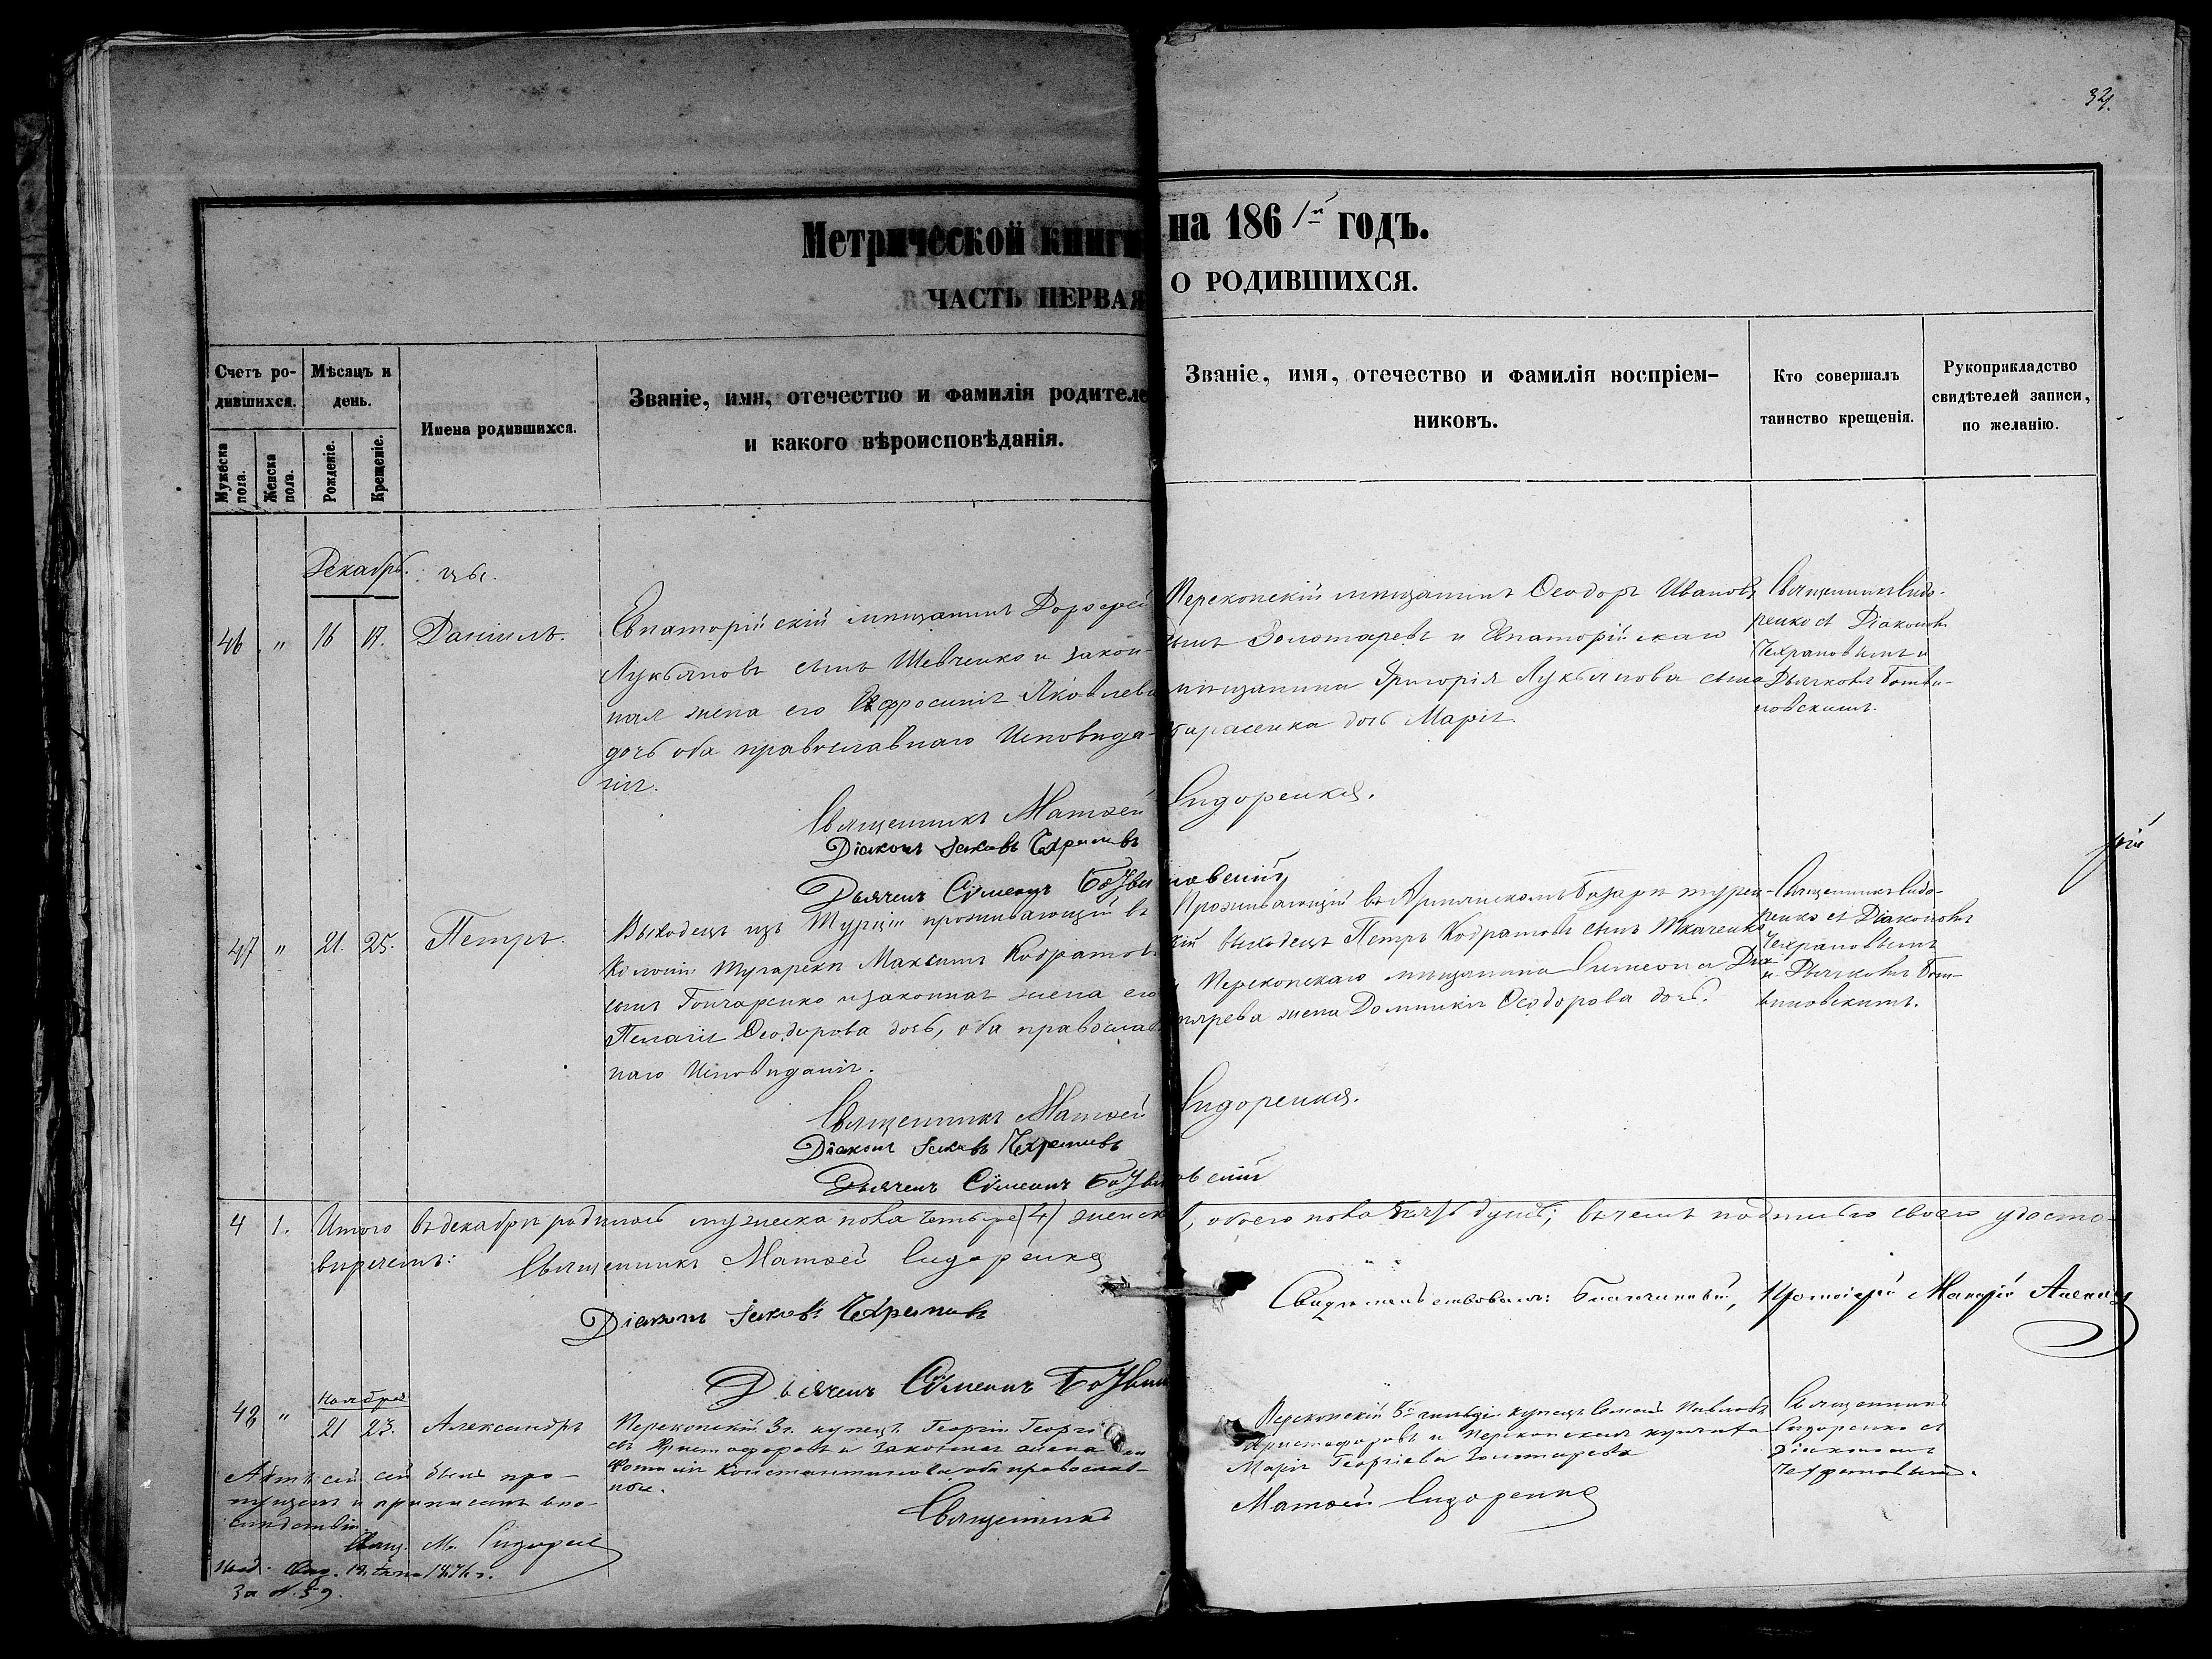 32.
Метрической книги на 186 1й годъ.
ЧАСТЬ ПЕРВАЯ О РОДИВШИХСЯ.
Счетъ родившихся.
Мужеска пола.
Женска пола.
Мѣсяцъ и день.
Рожденіе.
Крещеніе.
Имена родившихся.
Званіе, имя, отечество и фамилія родителе
и какого вѣроисповѣданія.
Званіе, имя, отечество и фамилія воспріем-
никовъ.
Кто совершалъ
таинство крещенія.
Рукоприкладство
свидѣтелей записи,
по желанію.
Декабрь.
46 " 16 17. Даніилъ.
Евпаторійскій мѣщанинъ Дорофей
Лукьяновъ сынъ Шевченко и закон-
ная жена его Ефросинія Яковлева
дочь оба православнаго Исповѣда-
нія.
Перекопскій мѣщанинъ Ѳеодоръ Ивановъ
сынъ Золотаревъ и Евпаторійскаго
мѣщанина Григорія Лукьянова сына
Тарасенка дочь Марія
Священникъ Сидо-
ренко съ Діакономъ
Чехрановымъ и
Дьячкомъ Ботви-
новскимъ.
Священникъ Матѳей Сидоренко.
Діаконъ Іаковъ Чехрановъ
Дьячекъ Сѵмеонъ Ботвиновскій
47 " 21. 25. Петръ.
Выходецъ изъ Турціи проживающій въ
Колоніи Максимъ Кодратовъ
сынъ Гончаренко и законная жена его
Пелагія Ѳеодорова дочь, оба православ
наго Исповѣданія.
Проживающій въ Армянскомъ Базарѣ турец-
кій выходецъ Петръ Кодратовъ сынъ Ткаченко
и Перекопскаго мѣщанина Симеона
жена Домникія Ѳеодорова дочь.
Священникъ Сидо-
ренко съ Діакономъ
Чехрановымъ
и Дьячкомъ Бот-
виновскимъ.
Священникъ Матѳей Сидоренко.
Діаконъ Іаковъ Чехрановъ
Дьячекъ Сѵмеонъ Ботвиновскій
4 1. Итого въ декабрѣ родилось мужеска пола четыре (4) женска 1, обоего пола душъ; въ чемъ подписью своею удосто-
вѣряемъ: Священникъ Матѳей Сидоренко
Діаконъ Іаковъ Чехрановъ
Свидѣтельствовалъ: Благочинный, Протоіерей
Дьячекъ Сѵмеонъ Ботвин
Ноября
48 " 21 23. Александръ
Перекопскій 3 г. купецъ Георгій Георгі
евъ Христофоровъ и законная жена его
Фотинія Константинова оба православ-
ные.
Перекопскій 3й гильдіи купецъ Семенъ Павловъ
Христофоровъ и Перекопская купчиха
Марія Георгіева Золотарева
Священникъ
Сидоренко съ
Діакономъ
Чехрановымъ.
Актъ сей былъ про-
пущенъ и приписанъ впо-
слѣдствіи.
Свящ. М. Сидорен
Священникъ Матѳей Сидоренко
За №. 59.